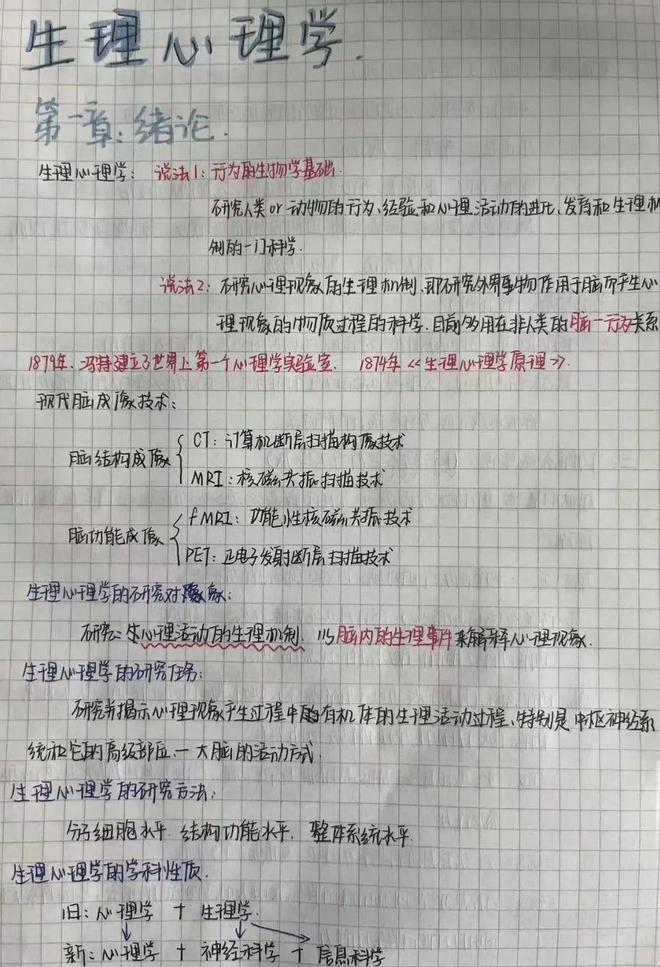 生理心理学.
第一章:绪论.
生理心理学: 说法1:行为的生物学基础.
研究人类or动物的行为、经验和心理活动的进化、发育和生理机
制的一门科学.
说法2:研究心理现象的生理机制.即研究外界事物作用于脑而产生心
理现象的物质过程的科学.目前多用在非人类的脑—行为关系
1879年.冯特建立了世界上第一个心理学实验室. 1874年<<生理心理学原理>>.
现代脑成像技术:
脑结构成像 { CT:计算机断层扫描构像技术
MRI:核磁共振扫描技术
脑功能成像 { fMRI:功能性核磁共振技术
PET:正电子发射断层扫描技术
生理心理学的研究对象:
研究:心理活动的生理机制. 以脑内的生理事件来解释心理现象.
生理心理学的研究任务:
研究并揭示心理现象产生过程中的有机体的生理活动过程,特别是中枢神经系
统和它的高级部位—大脑的活动方式.
生理心理学的研究方法:
分子细胞水平. 结构功能水平. 整体系统水平.
生理心理学的学科性质.
旧:心理学 + 生理学.
新:心理学 + 神经科学 + 信息科学